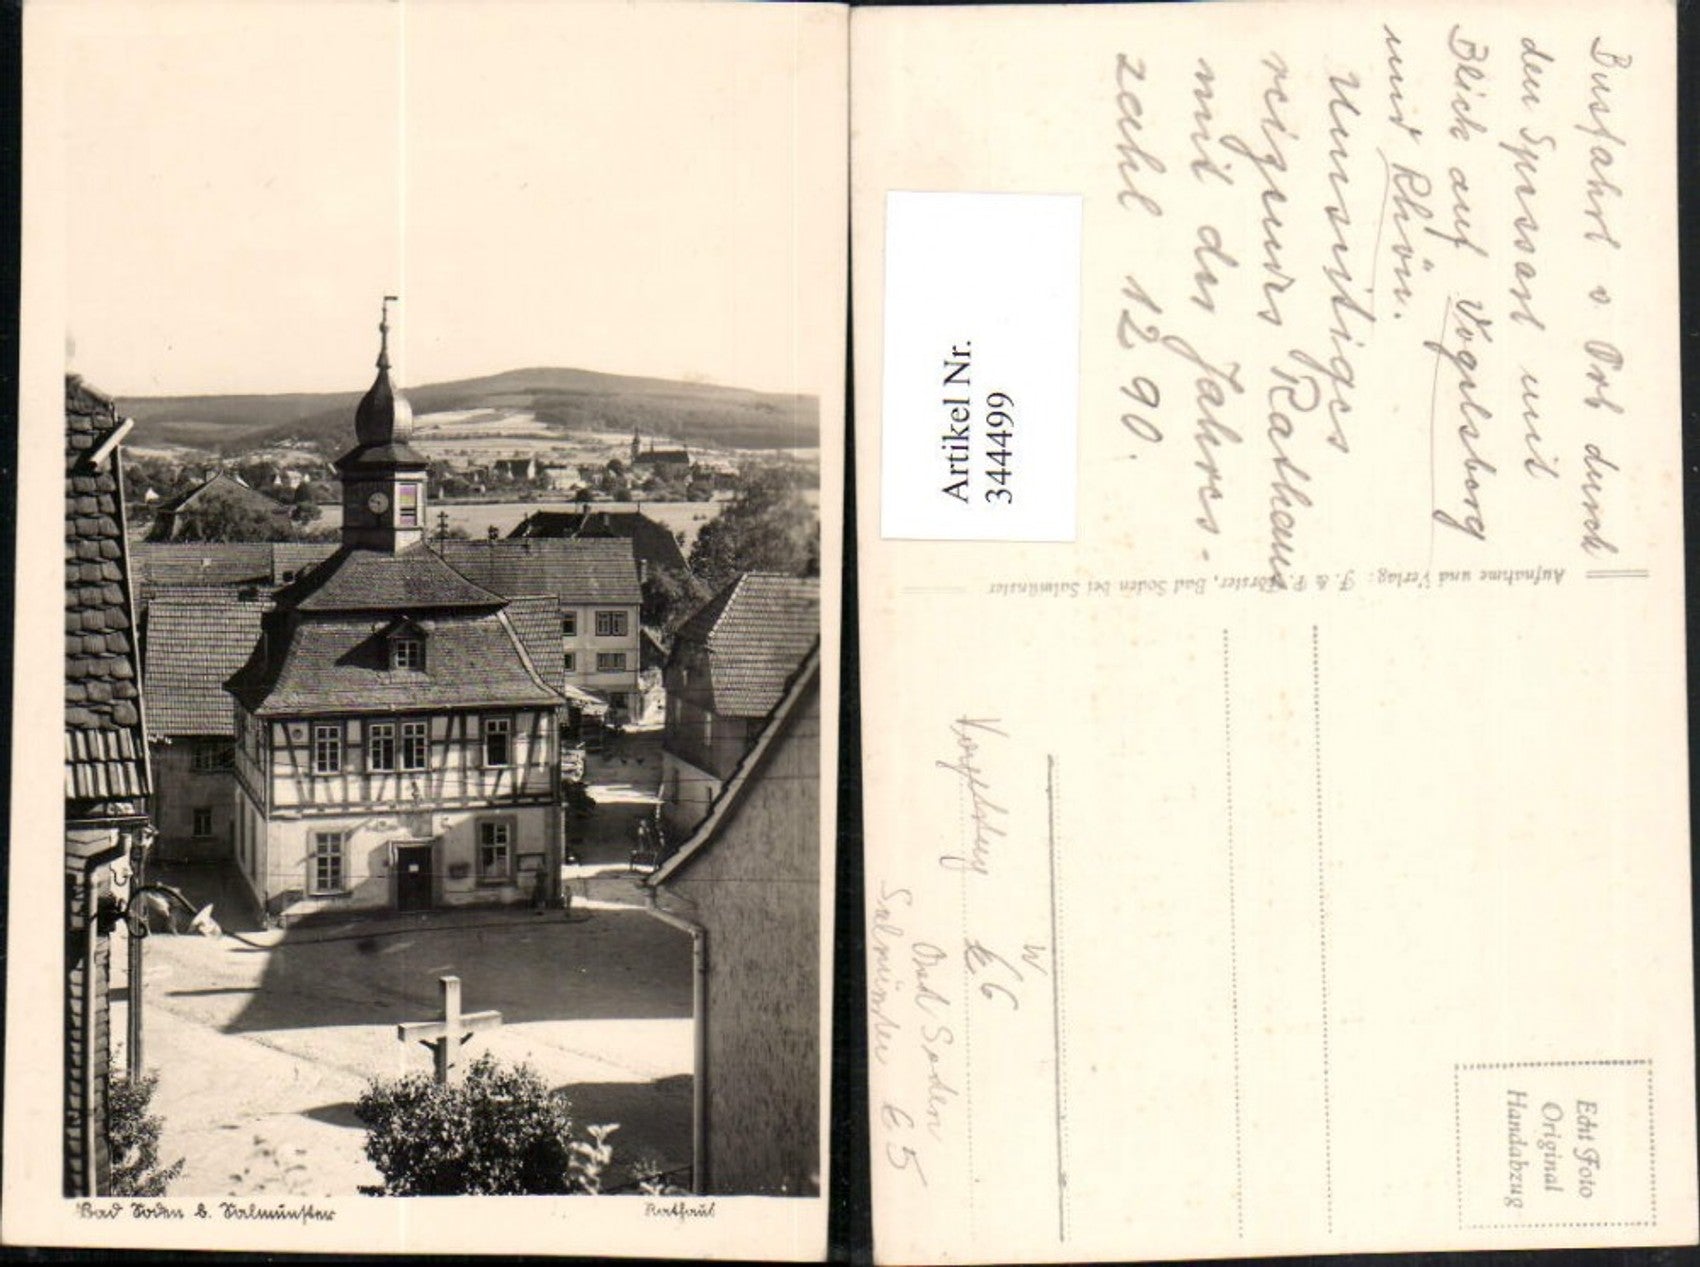 Bad Soden b. Salmünster
Rathaus
Busfahrt v Orb durch
den Spessart mit
Blick auf Vogelsborg
und Rhön.
Unsnitiges
reizends Rathaus
mit der Jahres-
zahl 1290.
Artikel Nr.
344499
Aufnahme und Verlag: F. & P. Förster, Bad Soden bei Salmünster
W
66
Bad Soden
Salmünster 65
Echt Foto
Original
Handabzug